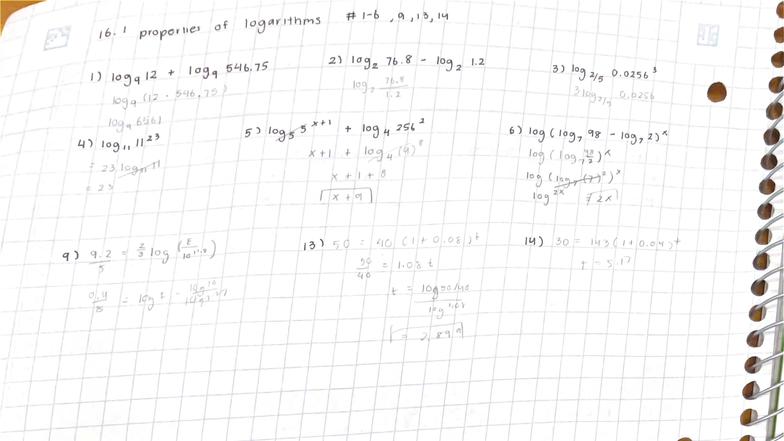 16.1 properties of logarithms #1-6, 9, 13, 14
1) log₉12 + log₉ 546.75
log₉(12 · 546.75)
log₉ 6561
2) log₂ 76.8 - log₂ 1.2
log₂ 76.8/1.2
3) log₂/₅ 0.0256³
3log₂/₅ 0.0256
4) log₁₁ 11²³
= 23 log₁₁ 11
= 23
5) log₅ 5ˣ⁺¹ + log₄ 256²
x+1 + log₄(4)⁸
x+1+8
x+9
6) log(log₇ 98 - log₇ 2)ˣ
log(log₇ 98/2)ˣ
log(log₇(7)²)ˣ
log 2x 2x
9) 9.2/5 = 2/3 log(E/10¹¹·⁸)
13) 50 = 40(1+0.08)ᵗ
50/40 = 1.08 t
t = log 50/40 / log 1.08
= 2.899
14) 30 = 143(1+0.04)ᵗ